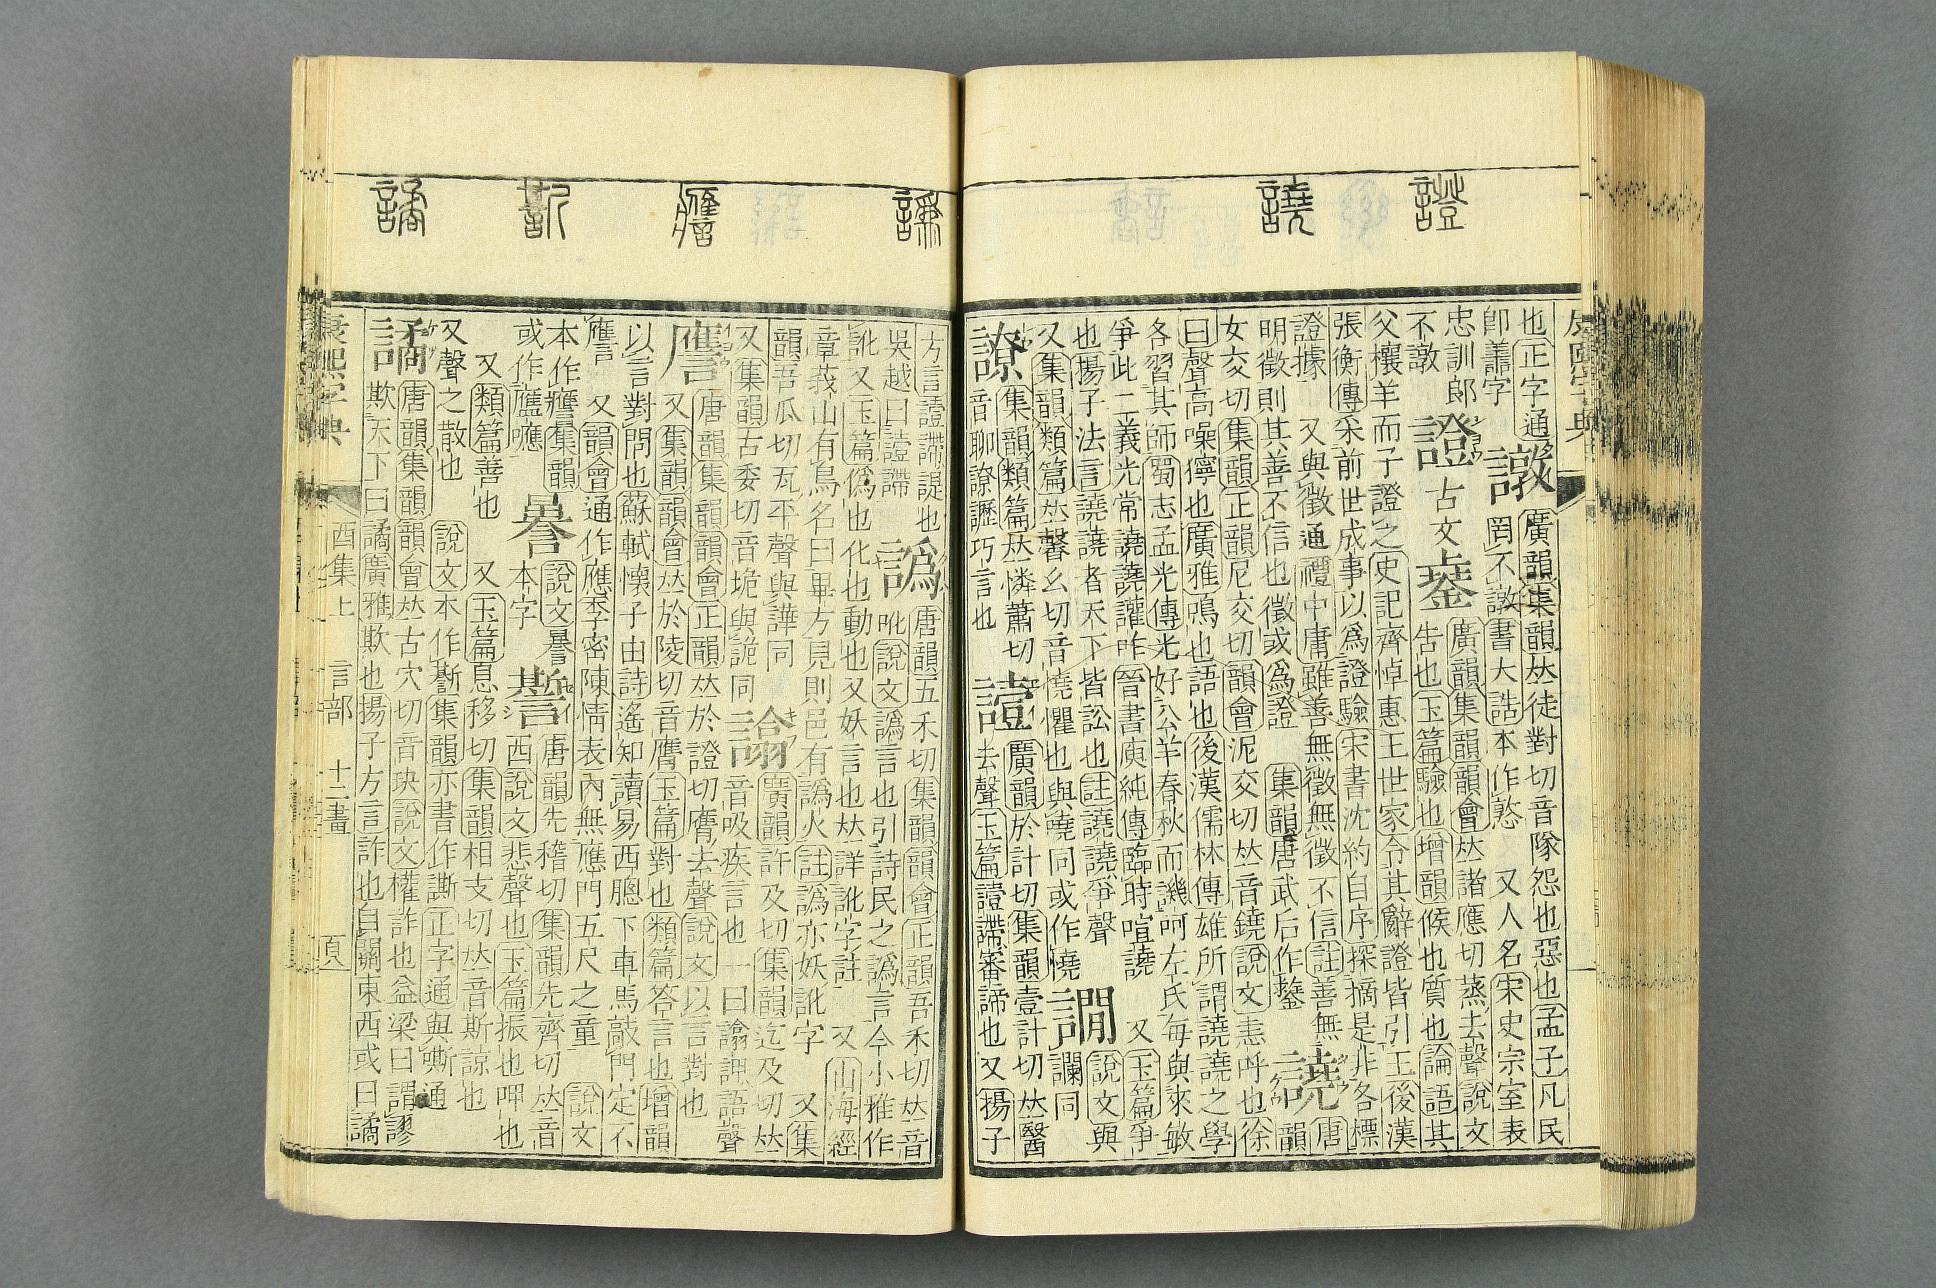 證 譊
康熙字典
也正字通 譈 廣韻集韻𠀤徒對切音隊怨也惡也孟子凡民
卽譱字 罔不譈書大誥本作憝 又人名宋史宗室表
忠訓郎 證 廣韻集韻韻會𠀤諸應切蒸去聲說文
不譈 古文 吿也玉篇驗也增韻候也質也論語其
父攘羊而子證之史記齊悼惠王世家令其辭證皆引王後漢
張衡傳采前世成事以爲證驗宋書沈約自序探摘是非各標
證據 又與徵通禮中庸雖善無徵無徵不信註善無 譊 唐
明徵則其善不信也徵或爲證 集韻唐武后作 韻
女交切集韻正韻尼交切韻會泥交切𠀤音鐃說文恚呼也徐
曰聲高噪獰也廣雅鳴也語也後漢儒林傳雄所謂譊譊之學
各習其師蜀志孟光傳光好公羊春秋而譏呵左氏每與來敏
爭此二義光常譊譊讙咋晉書庾純傳臨時喧譊 又玉篇爭
也揚子法言譊譊者天下皆訟也註譊譊爭聲 譋 說文與
又集韻類篇𠀤馨幺切音憢懼也與嘵同或作憢 讕同
集韻類篇𠀤憐蕭切 廣韻於計切集韻壹計切𠀤醫
音聊 讈巧言也 去聲玉篇 審諦也又揚子
譍 譎
方言 諟也 譌 唐韻五禾切集韻韻會正韻吾禾切𠀤音
吳越曰 吪說文譌言也引詩民之譌言今小雅作
訛又玉篇僞也化也動也又妖言也𠀤詳訛字註 又山海經
章莪山有鳥名曰畢方見則邑有譌火註譌亦妖訛字 又集
韻吾瓜切瓦平聲與譁同 廣韻許及切集韻迄及切𠀤
又集韻古委切音垝與詭同 音吸疾言也一曰 語聲
譍 唐韻集韻韻會正韻𠀤於證切膺去聲說文以言對也
又集韻韻會𠀤於陵切音膺玉篇對也類篇答言也增韻
以言對問也蘇軾懷子由詩遙知讀易西牕下車馬敲門定不
譍 又韻會通作應李密陳情表內無應門五尺之童 說文
本作 集韻 說文謈 唐韻先稽切集韻先齊切𠀤音
或作 噟 本字 西說文悲聲也玉篇振也呷也
又類篇善也 又玉篇息移切集韻相支切𠀤音斯諒也
又聲之散也 說文本作 集韻亦書作 正字通與嘶通
譎 唐韻集韻韻會𠀤古穴切音玦說文權詐也益梁曰謂謬
欺天下曰譎廣雅欺也揚子方言詐也自關東西或曰譎
康熙字典 酉集上 言部 十二畫 頁